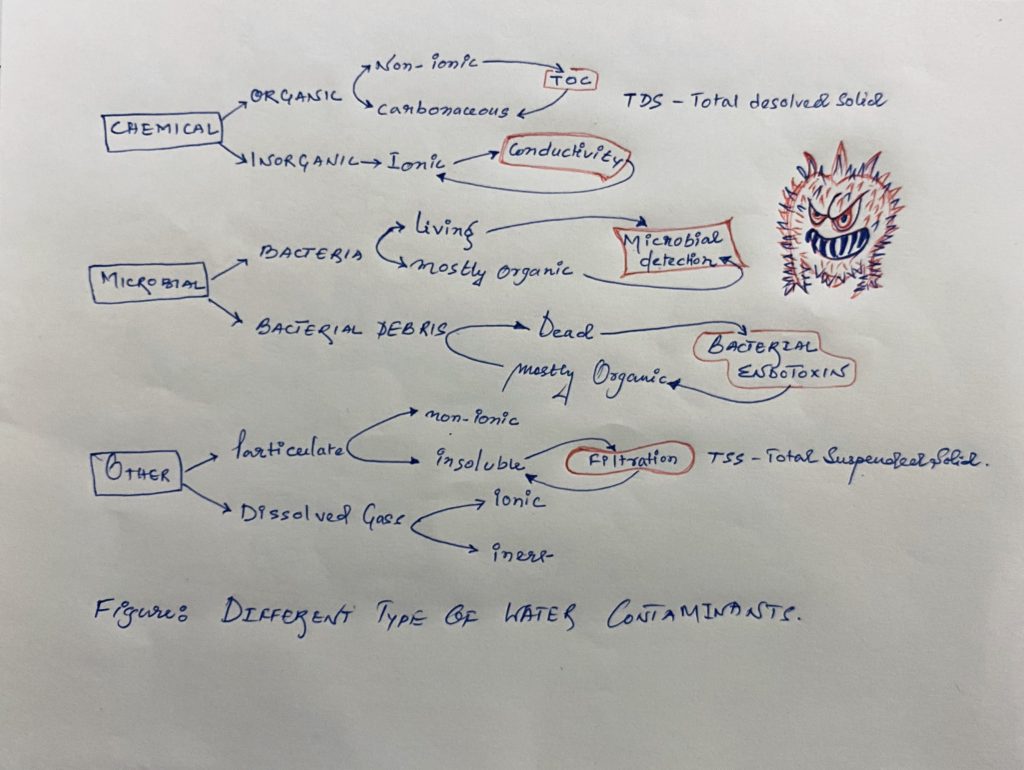 Non-ionic
TOC
ORGANIC
Carbonaceous
TDS - Total desolved solid
CHEMICAL
INORGANIC Ionic
Conductivity
living
BACTERIA
Microbial
detection
mostly organic
MICROBIAL
BACTERIAL DEBRIS
Dead
BACTERIAL
ENDOTOXIN
mostly Organic
non-ionic
Particulate
insoluble
Filtration
TSS - Total Suspended Solid.
OTHER
ionic
Dissolved Gass
inert
Figure: DIFFERENT TYPE OF WATER CONTAMINANTS.